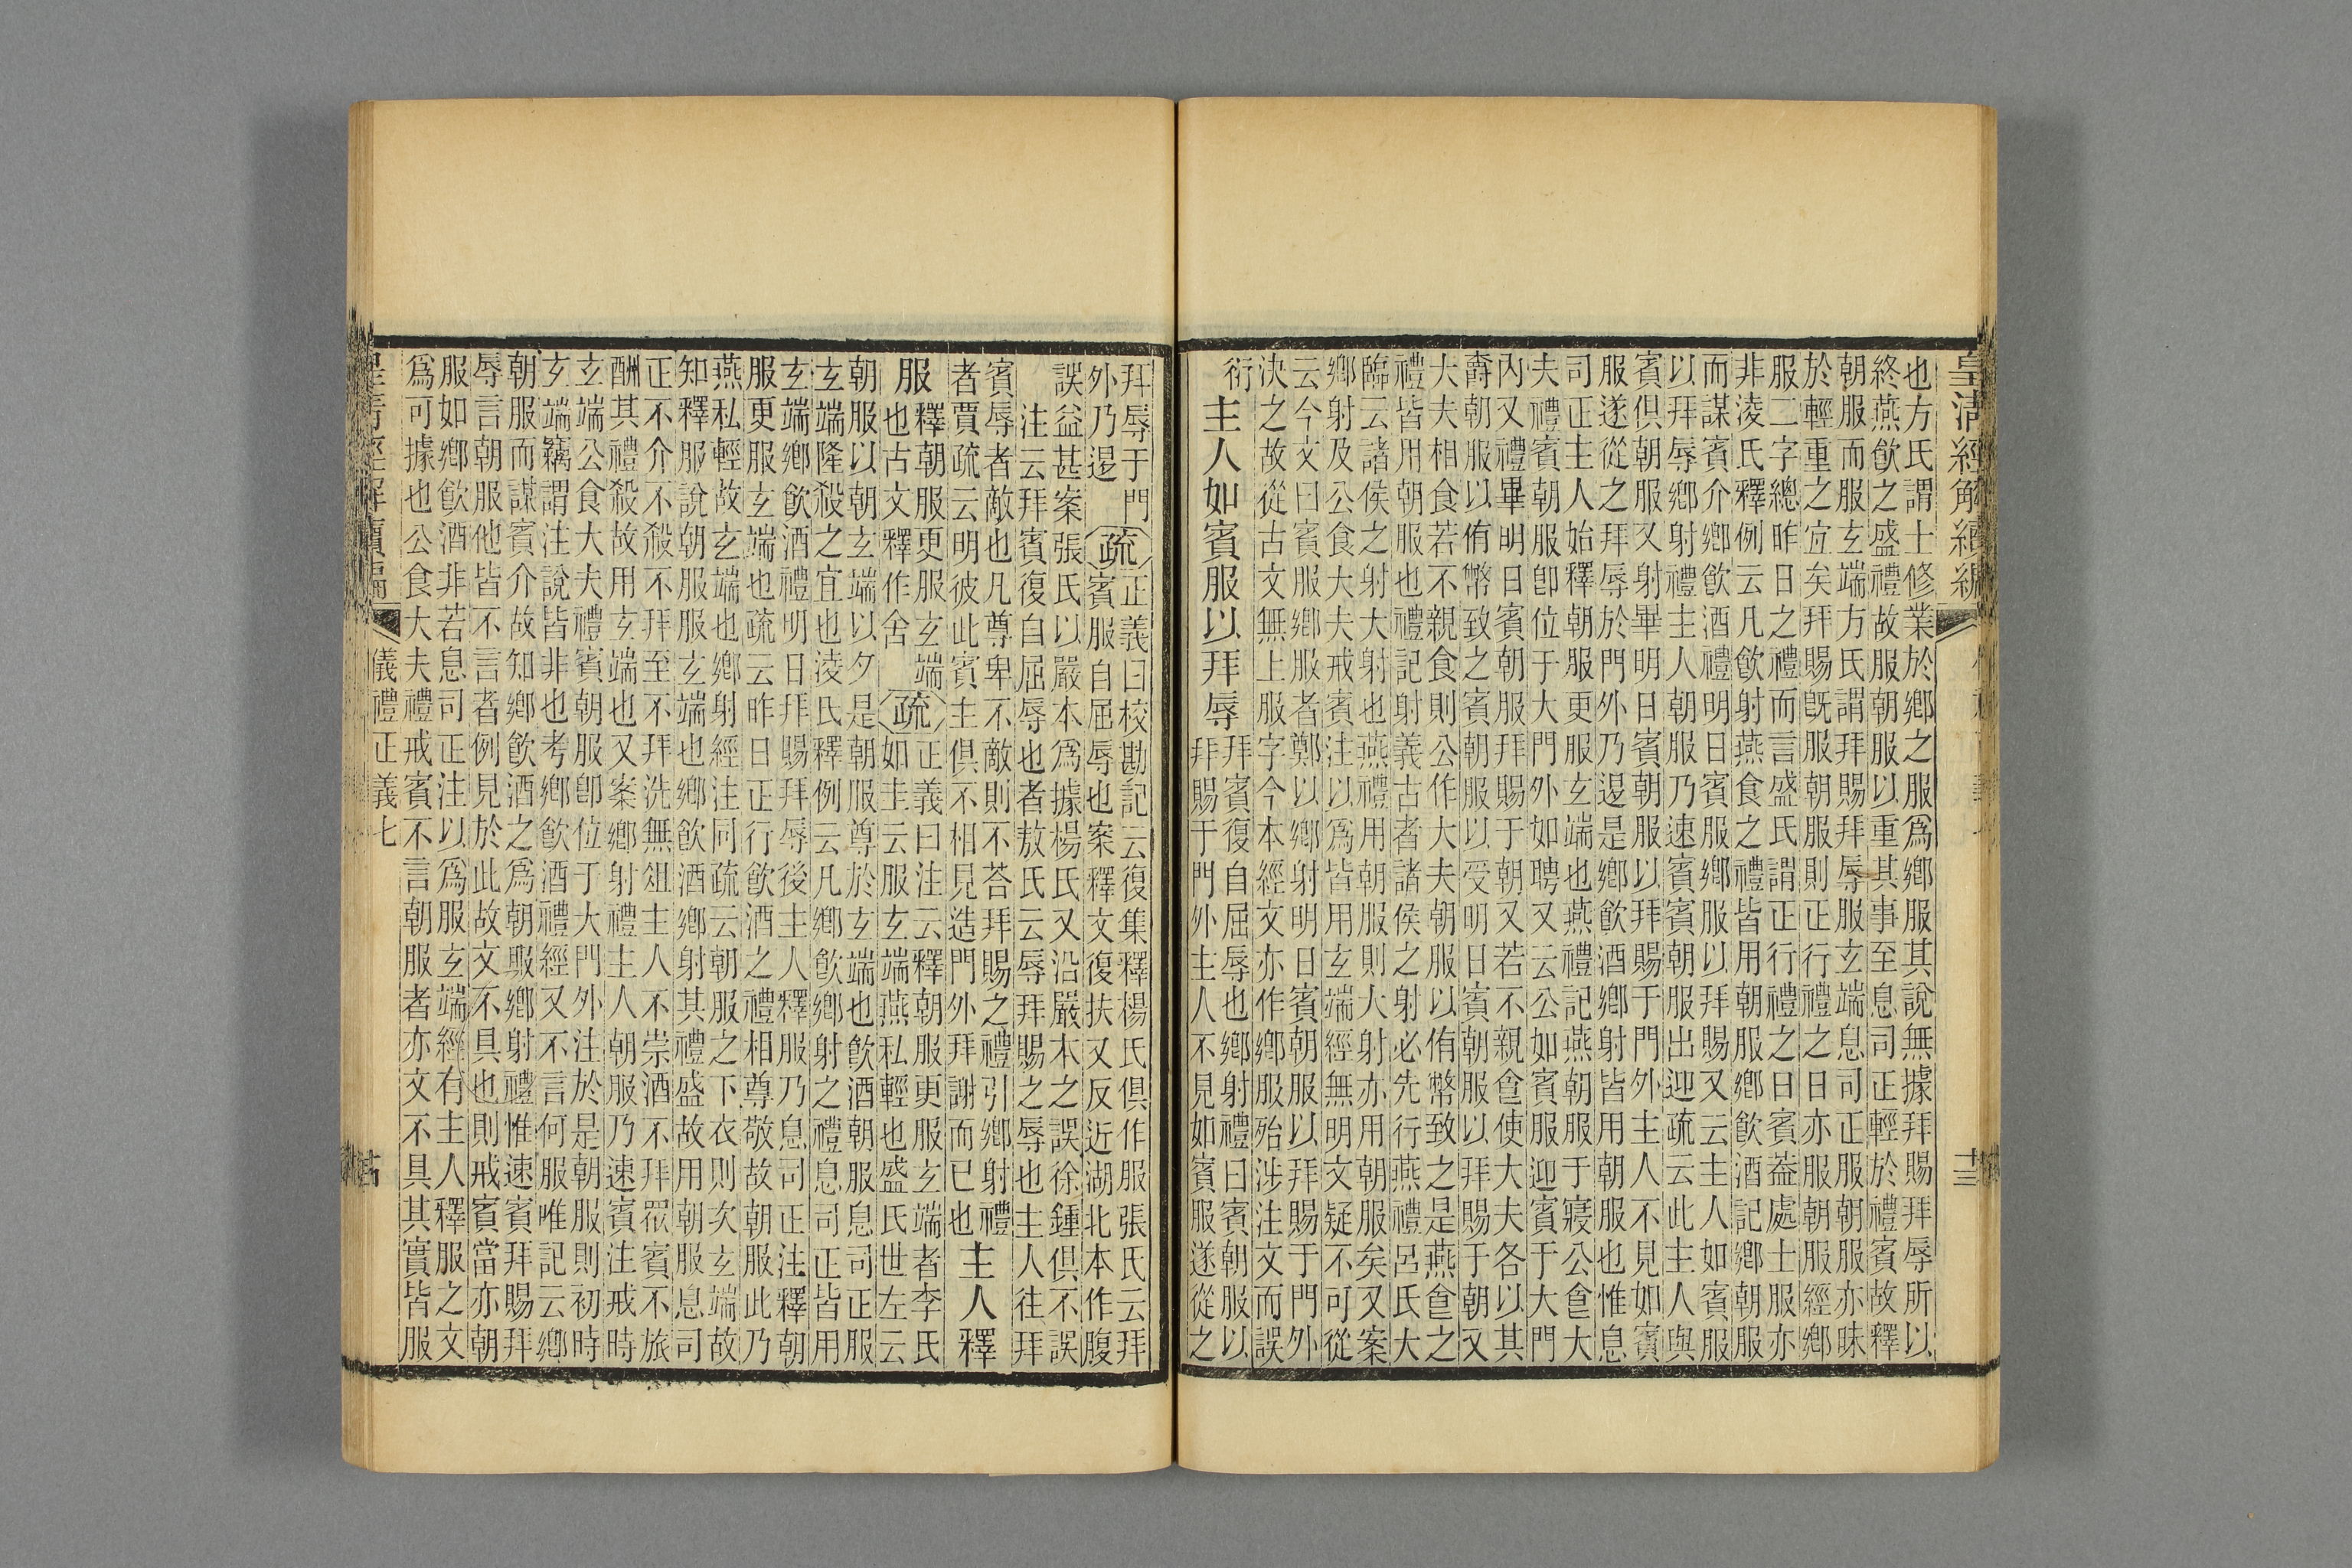 皇清經解續編
十三
也方氏謂士修業於鄉之服爲鄉服其說無據拜賜拜辱所以
終燕飮之盛禮故服朝服以重其事至息司正輕於禮賓故釋
朝服而服玄端方氏謂拜賜拜辱服玄端息司正服朝服亦昧
於輕重之宜矣拜賜旣服朝服則正行禮之日亦服朝服經鄉
服二字總昨日之禮而言盛氏謂正行禮之日賓葢處士服亦
非淩氏釋例云凡飮射燕食之禮皆用朝服鄉飮酒記鄉朝服
而謀賓介鄉飮酒禮明日賓服鄉服以拜賜又云主人如賓服
以拜辱鄉射禮主人朝服乃速賓賓朝服出迎疏云此主人與
賓俱朝服又射畢明日賓朝服以拜賜于門外主人不見如賓
服遂從之拜辱於門外乃退是鄉飮酒鄉射皆用朝服也惟息
司正主人始釋朝服更服玄端也燕禮記燕朝服于寢公食大
夫禮賓朝服卽位于大門外如聘又云公如賓服迎賓于大門
內又禮畢明日賓朝服拜賜于朝又若不親食使大夫各以其
爵朝服以侑幣致之賓朝服以受明日賓朝服以拜賜于朝又
大夫相食若不親食則公作大夫朝服以侑幣致之是燕食之
禮皆用朝服也禮記射義古者諸侯之射必先行燕禮呂氏大
臨云諸侯之射大射也燕禮用朝服則大射亦用朝服矣又案
鄉射及公食大夫戒賓注以爲皆用玄端經無明文疑不可從
云今文曰賓服鄉服者鄭以鄉射明日賓朝服以拜賜于門外
決之故從古文無上服字今本經文亦作鄉服殆涉注文而誤
衍主人如賓服以拜辱拜賓復自屈辱也鄉射禮曰賓朝服以
拜賜于門外主人不見如賓服遂從之
拜辱于門
外乃退疏正義曰校勘記云復集釋楊氏俱作服張氏云拜
賓服自屈辱也案釋文復扶又反近湖北本作腹
誤益甚案張氏以嚴本爲據楊氏又沿嚴本之誤徐鍾俱不誤
注云拜賓復自屈辱也者敖氏云辱拜賜之辱也主人往拜
賓辱者敵也凡尊卑不敵則不荅拜賜之禮引鄉射禮
者賈疏云明彼此賓主俱不相見造門外拜謝而已也主人釋
服釋朝服更服玄端
也古文釋作舍疏正義曰注云釋朝服更服玄端者李氏
如圭云服玄端燕私輕也盛氏世左云
朝服以朝玄端以夕是朝服尊於玄端也飮酒朝服息司正服
玄端隆殺之宜也淩氏釋例云凡鄉飮鄉射之禮息司正皆用
玄端鄉飮酒禮明日拜賜拜辱後主人釋服乃息司正注釋朝
服更服玄端也疏云昨日正行飮酒之禮相尊敬故朝服此乃
燕私輕故玄端也鄉射經注同疏云朝服之下衣則次玄端故
知釋服說朝服服玄端也鄉飮酒鄉射其禮盛故用朝服息司
正不介不殺不拜至不拜洗無俎主人不崇酒不拜眾賓不旅
酬其禮殺故用玄端也又案鄉射禮主人朝服乃速賓注戒時
玄端公食大夫禮賓朝服卽位于大門外注於是朝服則初時
玄端竊謂注說皆非也考鄉飮酒禮經又不言何服唯記云鄉
朝服而謀賓介故知鄉飮酒之爲朝服鄉射禮惟速賓拜賜拜
辱言朝服他皆不言者例見於此故文不具也則戒賓當亦朝
服如鄉飮酒非若息司正注以爲服玄端經有主人釋服之文
爲可據也公食大夫禮戒賓不言朝服者亦文不具其實皆服
皇清經解續編
儀禮正義七